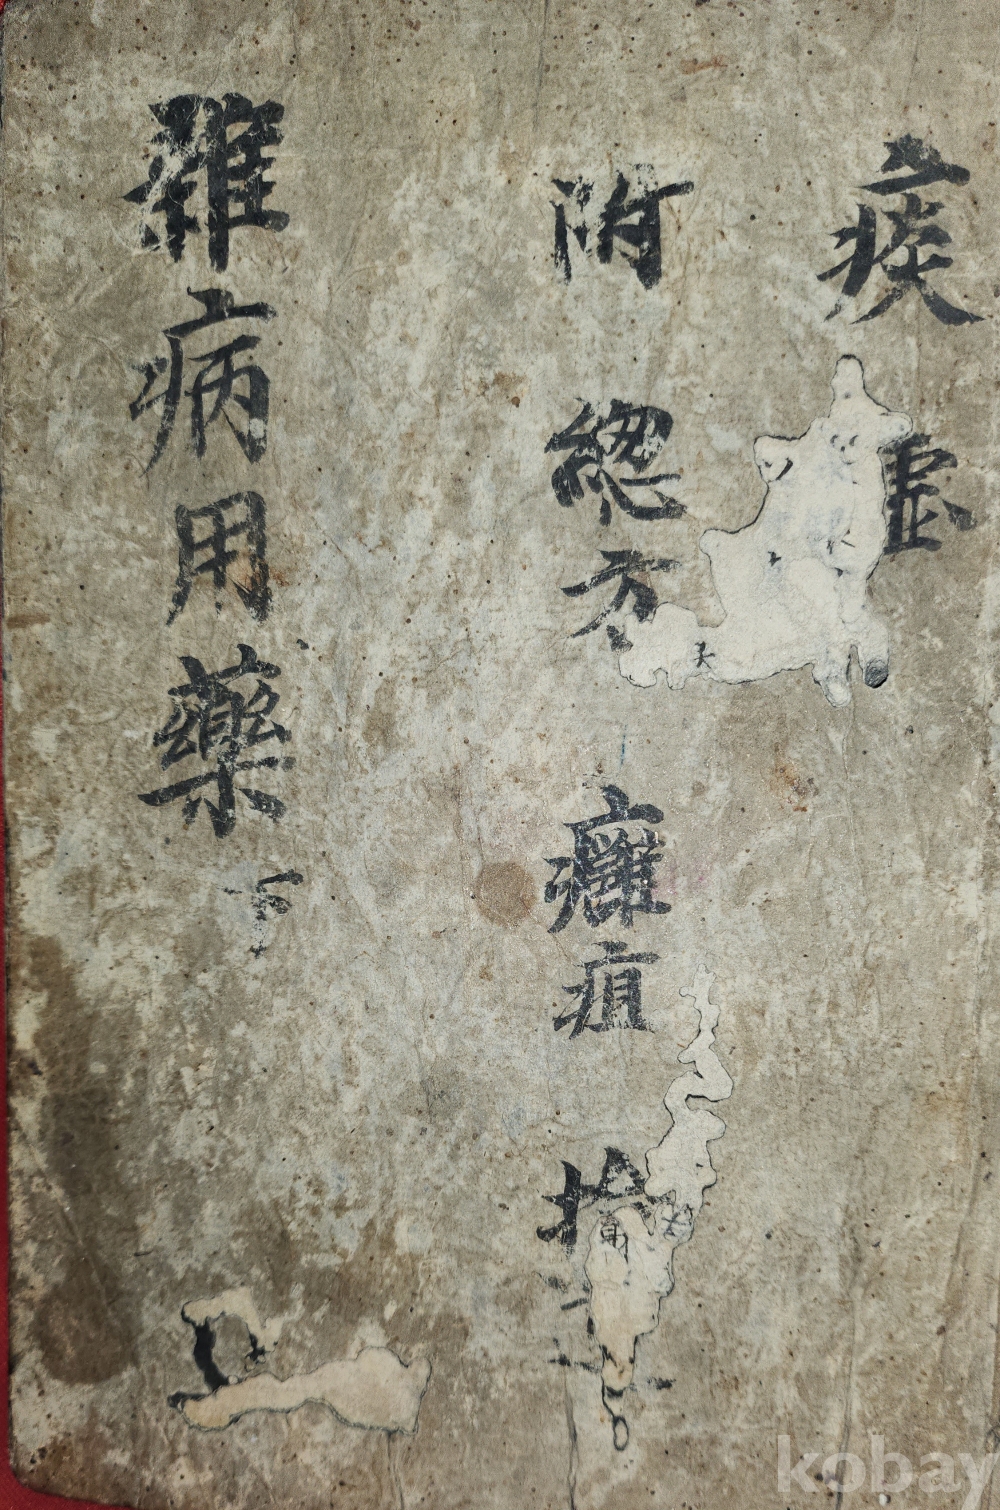 痰 虛
附 總方 癰疽
雜病用藥 下
kobay